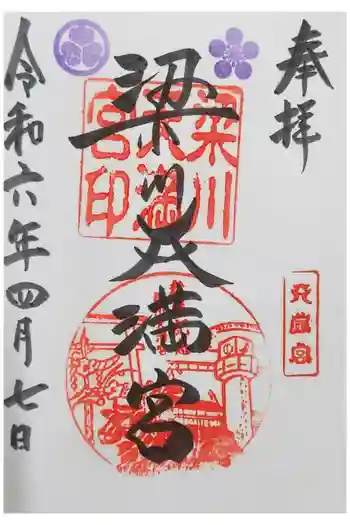 奉拝
梁川天満宮
令和六年四月七日
梁川
天満
宮印